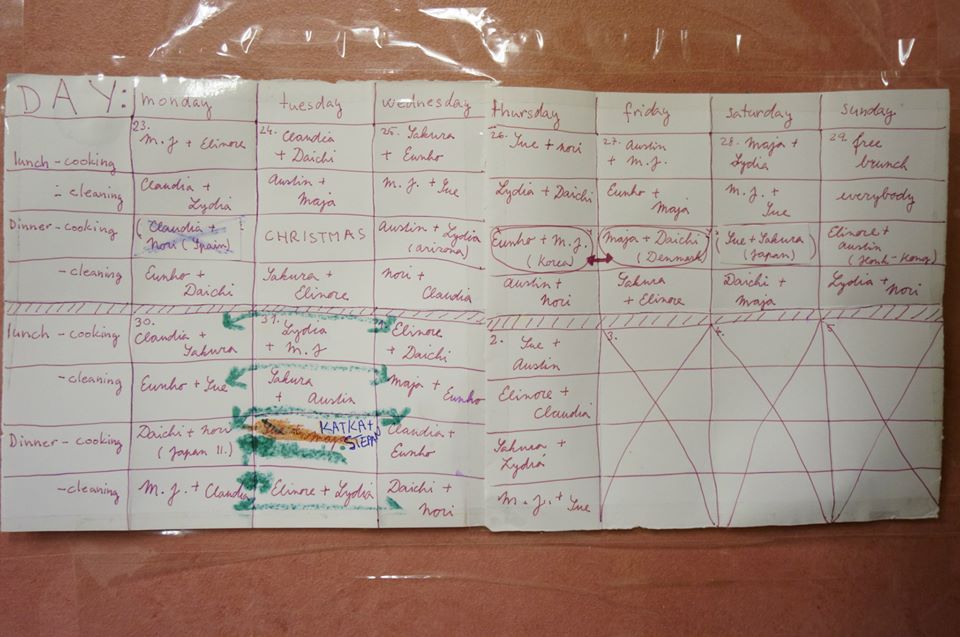 DAY:
monday
tuesday
wednesday
thursday
friday
saturday
sunday
lunch-cooking
23.
M.J. + Elinore
24. Claudia
+ Daichi
25. Sakura
+ Eunho
26. Yue + nori
27. Austin
+ M.J.
28. Maja +
Lydia
29. free
brunch
- cleaning
Claudia +
Lydia
Austin +
Maja
M.J. + Yue
Lydia + Daichi
Eunho +
Maja
M.J. +
Yue
everybody
Dinner-cooking
(Claudia +
Nori (Spain)
CHRISTMAS
Austin + Lydia
(arizona)
Eunho + M.J.
(Korea)
maja + Daichi
(Denmark)
Yue + Sakura
(Japan)
Elinore +
austin
(Honk-Kong)
- cleaning
Eunho +
Daichi
Sakura +
Elinore
nori +
Claudia
Austin +
Nori
Sakura
+ Elinore
Daichi +
maja
Lydia + Nori
lunch-cooking
30.
Claudia +
Sakura
31.
Lydia
+ M.J
Elinore
+ Daichi
2. Yue +
Austin
3.
4.
5.
- cleaning
Eunho + Yue
Sakura
+ Austin
Maja + Eunho
Elinore +
Claudia
Dinner-cooking
Daichi + Nori
(Japan II.)
KATKA +
STEPAN
Claudia +
Eunho
Sakura +
Lydia
- cleaning
M.J. + Claudia
Elinore + Lydia
Daichi +
Nori
M.J. + Yue